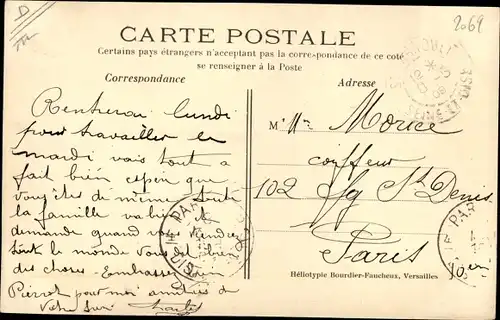 2069
CARTE POSTALE
Certains pays étrangers n'acceptant pas la correspondance de ce coté
se renseigner à la Poste
Correspondance
Adresse
Rentrerai lundi
pour travailler le
mardi vais tout à
fait bien espère que
vous êtes de même toute
la famille va bien et
demande quand vous viendrez
tout le monde vous dit bien
des choses - Embrassez bien
Pierrot pour moi amitiés de
votre
Mr Morice
coiffeur
102 Fg St Denis
Paris
10e
SEINE-ET-OISE
PARIS
PAR
Héliotypie Bourdier-Faucheux, Versailles